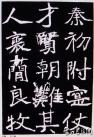 秦初附寧仗
才賢朝難其
人襄蘭良牧